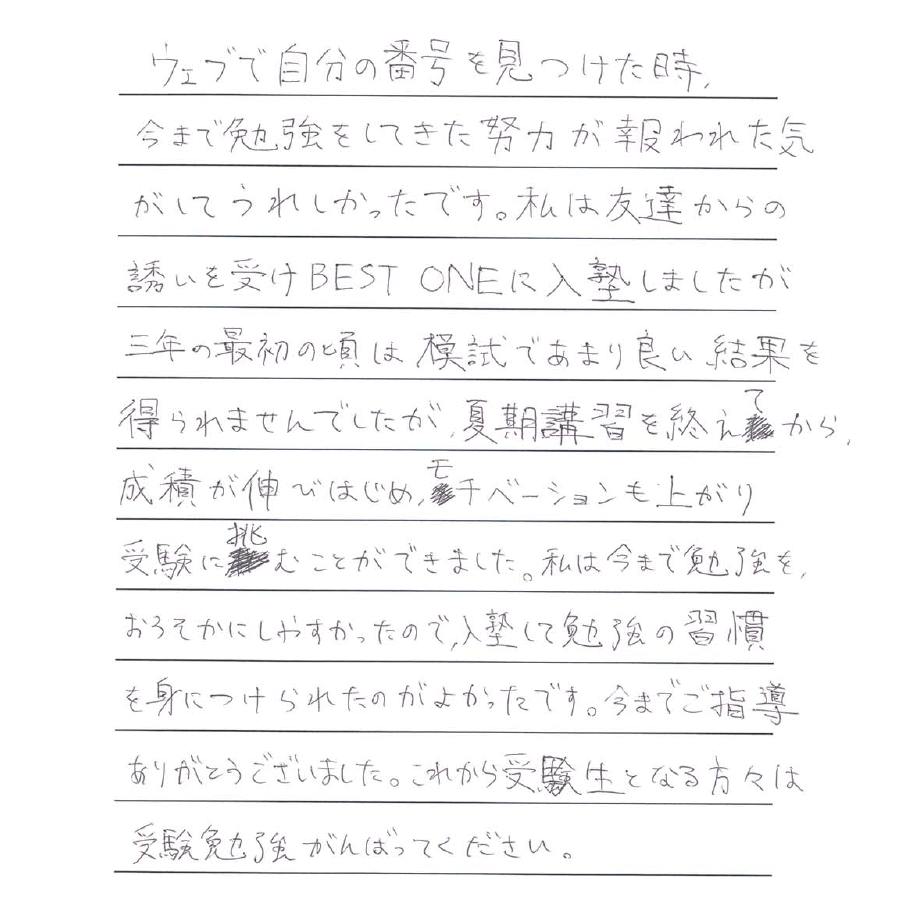 ウェブで自分の番号を見つけた時,
今まで勉強をしてきた努力が報われた気
がしてうれしかったです。私は友達からの
誘いを受けBEST ONEに入塾しましたが
三年の最初の頃は模試であまり良い結果を
得られませんでしたが,夏期講習を終えてから,
成積が伸びはじめ,モチベーションも上がり
受験に挑むことができました。私は今まで勉強を,
おろそかにしやすかったので,入塾して勉強の習慣
を身につけられたのがよかったです。今までご指導
ありがとうございました。これから受験生となる方々は
受験勉強がんばってください。